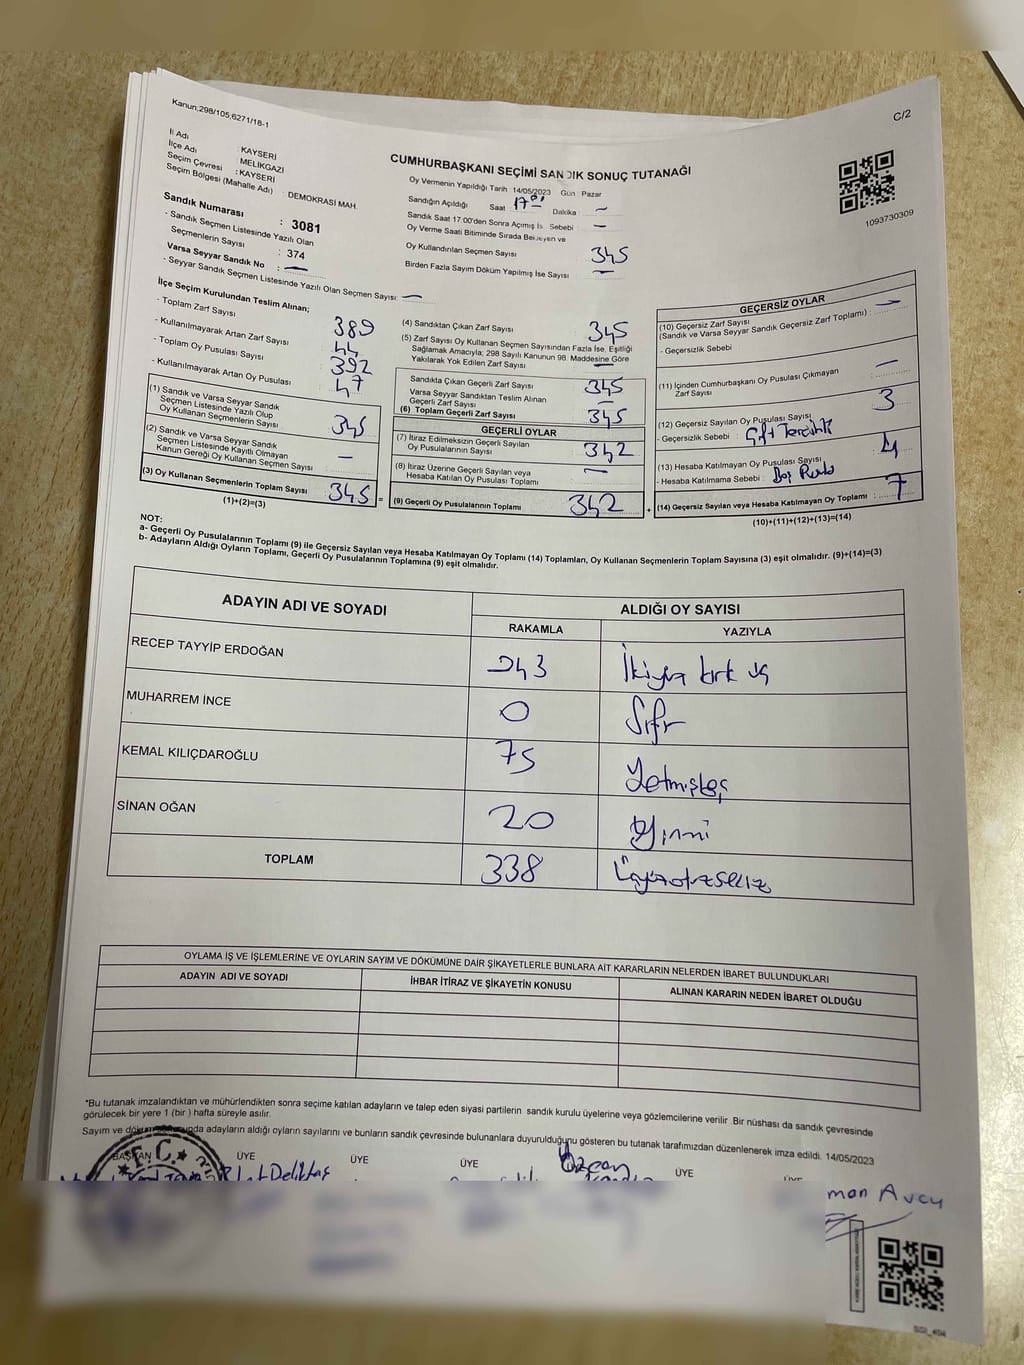 Kanun,298/105,6271/18-1
C/2
İl Adı : KAYSERİ
İlçe Adı : MELİKGAZİ
Seçim Çevresi : KAYSERİ
Seçim Bölgesi (Mahalle Adı) : DEMOKRASI MAH.
Sandık Numarası : 3081
- Sandık Seçmen Listesinde Yazılı Olan
Seçmenlerin Sayısı : 374
Varsa Seyyar Sandık No : —
- Seyyar Sandık Seçmen Listesinde Yazılı Olan Seçmen Sayısı : —
CUMHURBAŞKANI SEÇİMİ SANDIK SONUÇ TUTANAĞI
Oy Vermenin Yapıldığı Tarih 14/05/2023 Gün : Pazar
Sandığın Açıldığı Saat : 17 Dakika : —
Sandık Saat 17:00'den Sonra Açılmış İse Sebebi : —
Oy Verme Saati Bitiminde Sırada Bekleyen ve
Oy Kullandırılan Seçmen Sayısı 345
Birden Fazla Sayım Döküm Yapılmış İse Sayısı —
1093730309
İlçe Seçim Kurulundan Teslim Alınan;
- Toplam Zarf Sayısı 389
- Kullanılmayarak Artan Zarf Sayısı 44
- Toplam Oy Pusulası Sayısı 392
- Kullanılmayarak Artan Oy Pusulası 47
(1) Sandık ve Varsa Seyyar Sandık
Seçmen Listesinde Yazılı Olup
Oy Kullanan Seçmenlerin Sayısı 345
(2) Sandık ve Varsa Seyyar Sandık
Seçmen Listesinde Kayıtlı Olmayan
Kanun Gereği Oy Kullanan Seçmen Sayısı —
(3) Oy Kullanan Seçmenlerin Toplam Sayısı 345 =
(1)+(2)=(3)
(4) Sandıktan Çıkan Zarf Sayısı : 345
(5) Zarf Sayısı Oy Kullanan Seçmen Sayısından Fazla İse, Eşitliği
Sağlamak Amacıyla; 298 Sayılı Kanunun 98. Maddesine Göre
Yakılarak Yok Edilen Zarf Sayısı —
Sandıkta Çıkan Geçerli Zarf Sayısı 345
Varsa Seyyar Sandıktan Teslim Alınan
Geçerli Zarf Sayısı —
(6) Toplam Geçerli Zarf Sayısı 345
GEÇERLİ OYLAR
(7) İtiraz Edilmeksizin Geçerli Sayılan
Oy Pusulalarının Sayısı : 342
(8) İtiraz Üzerine Geçerli Sayılan veya
Hesaba Katılan Oy Pusulası Toplamı : —
(9) Geçerli Oy Pusulalarının Toplamı 342 +
GEÇERSİZ OYLAR
(10) Geçersiz Zarf Sayısı
(Sandık ve Varsa Seyyar Sandık Geçersiz Zarf Toplamı) : —
- Geçersizlik Sebebi
(11) İçinden Cumhurbaşkanı Oy Pusulası Çıkmayan
Zarf Sayısı —
(12) Geçersiz Sayılan Oy Pusulası Sayısı 3
- Geçersizlik Sebebi : Çift Tercihli
(13) Hesaba Katılmayan Oy Pusulası Sayısı 4
- Hesaba Katılmama Sebebi : Boş
(14) Geçersiz Sayılan veya Hesaba Katılmayan Oy Toplamı : 7
(10)+(11)+(12)+(13)=(14)
NOT:
a- Geçerli Oy Pusulalarının Toplamı (9) ile Geçersiz Sayılan veya Hesaba Katılmayan Oy Toplamı (14) Toplamları, Oy Kullanan Seçmenlerin Toplam Sayısına (3) eşit olmalıdır. (9)+(14)=(3)
b- Adayların Aldığı Oyların Toplamı, Geçerli Oy Pusulalarının Toplamına (9) eşit olmalıdır.
ADAYIN ADI VE SOYADI ALDIĞI OY SAYISI
RAKAMLA YAZIYLA
RECEP TAYYİP ERDOĞAN 243 İkiyüz kırk üç
MUHARREM İNCE 0 Sıfır
KEMAL KILIÇDAROĞLU 75 Yetmişbeş
SİNAN OĞAN 20 Yirmi
TOPLAM 338 Üçyüzotuzsekiz
OYLAMA İŞ VE İŞLEMLERİNE VE OYLARIN SAYIM VE DÖKÜMÜNE DAİR ŞİKAYETLERLE BUNLARA AİT KARARLARIN NELERDEN İBARET BULUNDUKLARI
ADAYIN ADI VE SOYADI İHBAR İTİRAZ VE ŞİKAYETİN KONUSU ALINAN KARARIN NEDEN İBARET OLDUĞU
*Bu tutanak imzalandıktan ve mühürlendikten sonra seçime katılan adayların ve talep eden siyasi partilerin sandık kurulu üyelerine veya gözlemcilerine verilir. Bir nüshası da sandık çevresinde
görülecek bir yere 1 (bir) hafta süreyle asılır.
Sayım ve döküm sonunda adayların aldığı oyların sayılarını ve bunların sandık çevresinde bulunanlara duyurulduğunu gösteren bu tutanak tarafımızdan düzenlenerek imza edildi. 14/05/2023
BAŞKAN ÜYE ÜYE ÜYE ÜYE ÜYE
T.C.
Deliktaş Özcan
Avcu